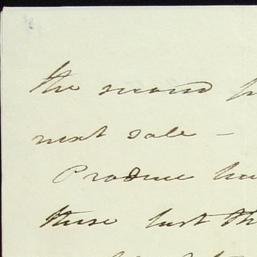 the second
next sale -
Produce
these last